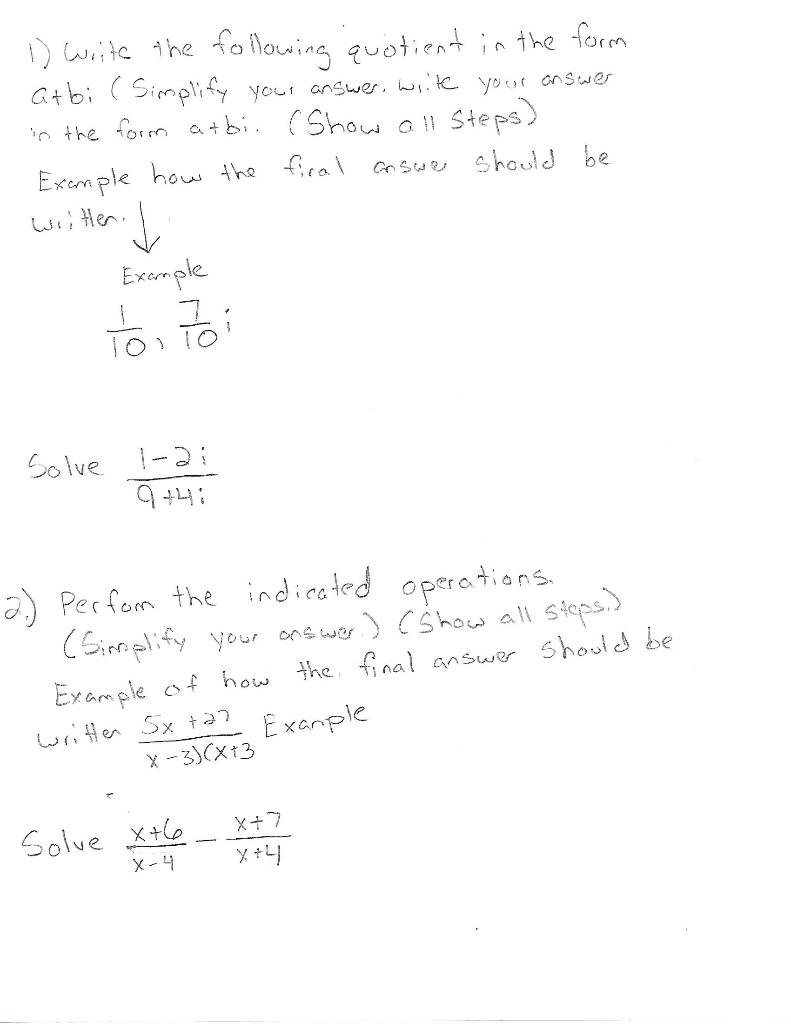 1) Write the following quotient in the form
a+bi (Simplify your answer. Write your answer
in the form a+bi. (Show all steps)
Example how the final answer should be
written. ↓
Example
1/10, 7/10 i
Solve (1-2i)/(9+4i)
2.) Perfom the indicated operations.
(Simplify your answer.) (Show all steps.)
Example of how the final answer should be
written 5x+27/x-3)(x+3 Example
Solve x+6/x-4 - x+7/x+4